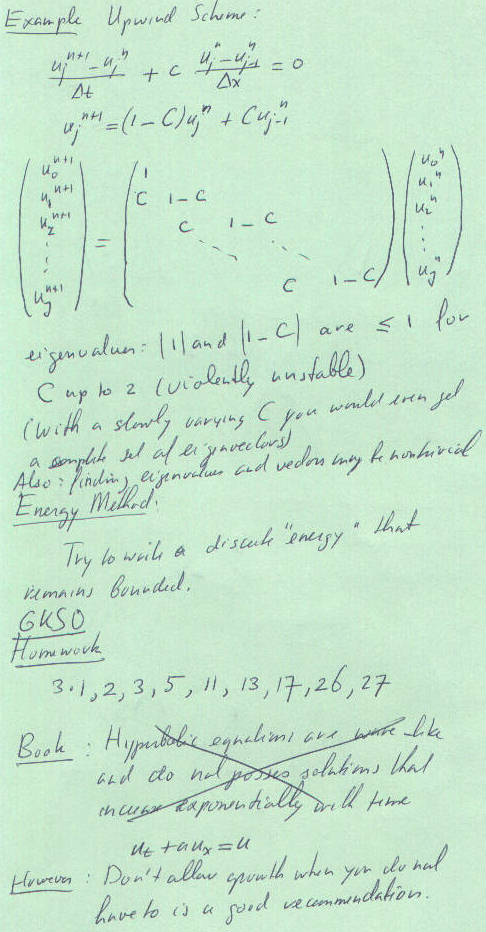 Example Upwind Scheme:
(u_j^{n+1} - u_j^n)/Δt + c (u_j^n - u_{j-1}^n)/Δx = 0
u_j^{n+1} = (1 - C) u_j^n + C u_{j-1}^n
u_0^{n+1} 1 u_0^n
u_1^{n+1} C 1 - C u_1^n
u_2^{n+1} = C 1 - C u_2^n
u_J^{n+1} C 1 - C u_J^n
eigenvalues: |1| and |1 - C| are ≤ 1 for
C up to 2 (violently unstable)
(with a slowly varying C you would even get
a complete set of eigenvectors)
Also: finding eigenvalues and vectors may be nontrivial
Energy Method:
Try to write a discrete "energy" that
remains bounded.
GKSO
Homework
3.1, 2, 3, 5, 11, 13, 17, 26, 27
Book: Hyperbolic equations are wave like
and do not posses solutions that
increase exponentially with time
u_t + a u_x = u
However: Don't allow growth when you do not
have to is a good recommendation.